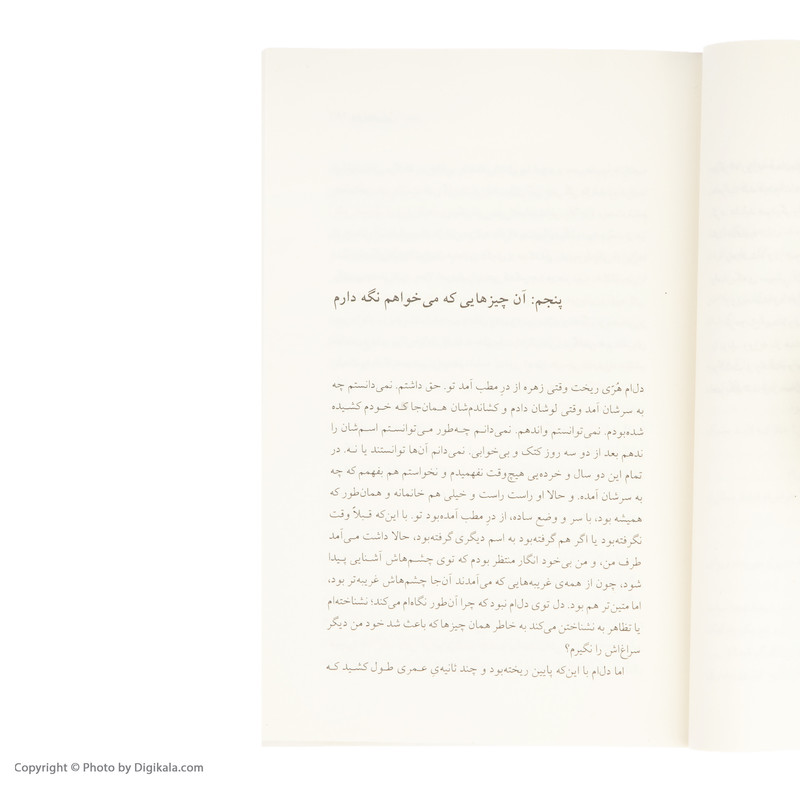 پنجم: آن چیزهایی که می‌خواهم نگه دارم
دل‌ام هُرّی ریخت وقتی زهره از درِ مطب آمد تو. حق داشتم. نمی‌دانستم چه
به سرشان آمد وقتی لوشان دادم و کشاندم‌شان همان‌جا که خودم کشیده
شده‌بودم. نمی‌توانستم واندهم. نمی‌دانم چه‌طور می‌توانستم اسم‌شان را
ندهم بعد از دو سه روز کتک و بی‌خوابی. نمی‌دانم آن‌ها توانستند یا نه. در
تمام این دو سال و خرده‌یی هیچ‌وقت نفهمیدم و نخواستم هم بفهمم که چه
به سرشان آمده. و حالا او راست راست و خیلی هم خانمانه و همان‌طور که
همیشه بود، با سر و وضع ساده، از درِ مطب آمده‌بود تو. با این‌که قبلاً وقت
نگرفته‌بود یا اگر هم گرفته‌بود به اسم دیگری گرفته‌بود، حالا داشت می‌آمد
طرف من، و من بی‌خود انگار منتظر بودم که توی چشم‌هاش آشنایی پیدا
شود، چون از همه‌ی غریبه‌هایی که می‌آمدند آن‌جا چشم‌هاش غریبه‌تر بود،
اما متین‌تر هم بود. دل توی دل‌ام نبود که چرا آن‌طور نگاه‌ام می‌کند؛ نشناخته‌ام
یا تظاهر به نشناختن می‌کند به خاطر همان چیزها که باعث شد خود من دیگر
سراغ‌اش را نگیرم؟
اما دل‌ام با این‌که پایین ریخته‌بود و چند ثانیه‌ی عمری طول کشید که
Copyright © Photo by Digikala.com